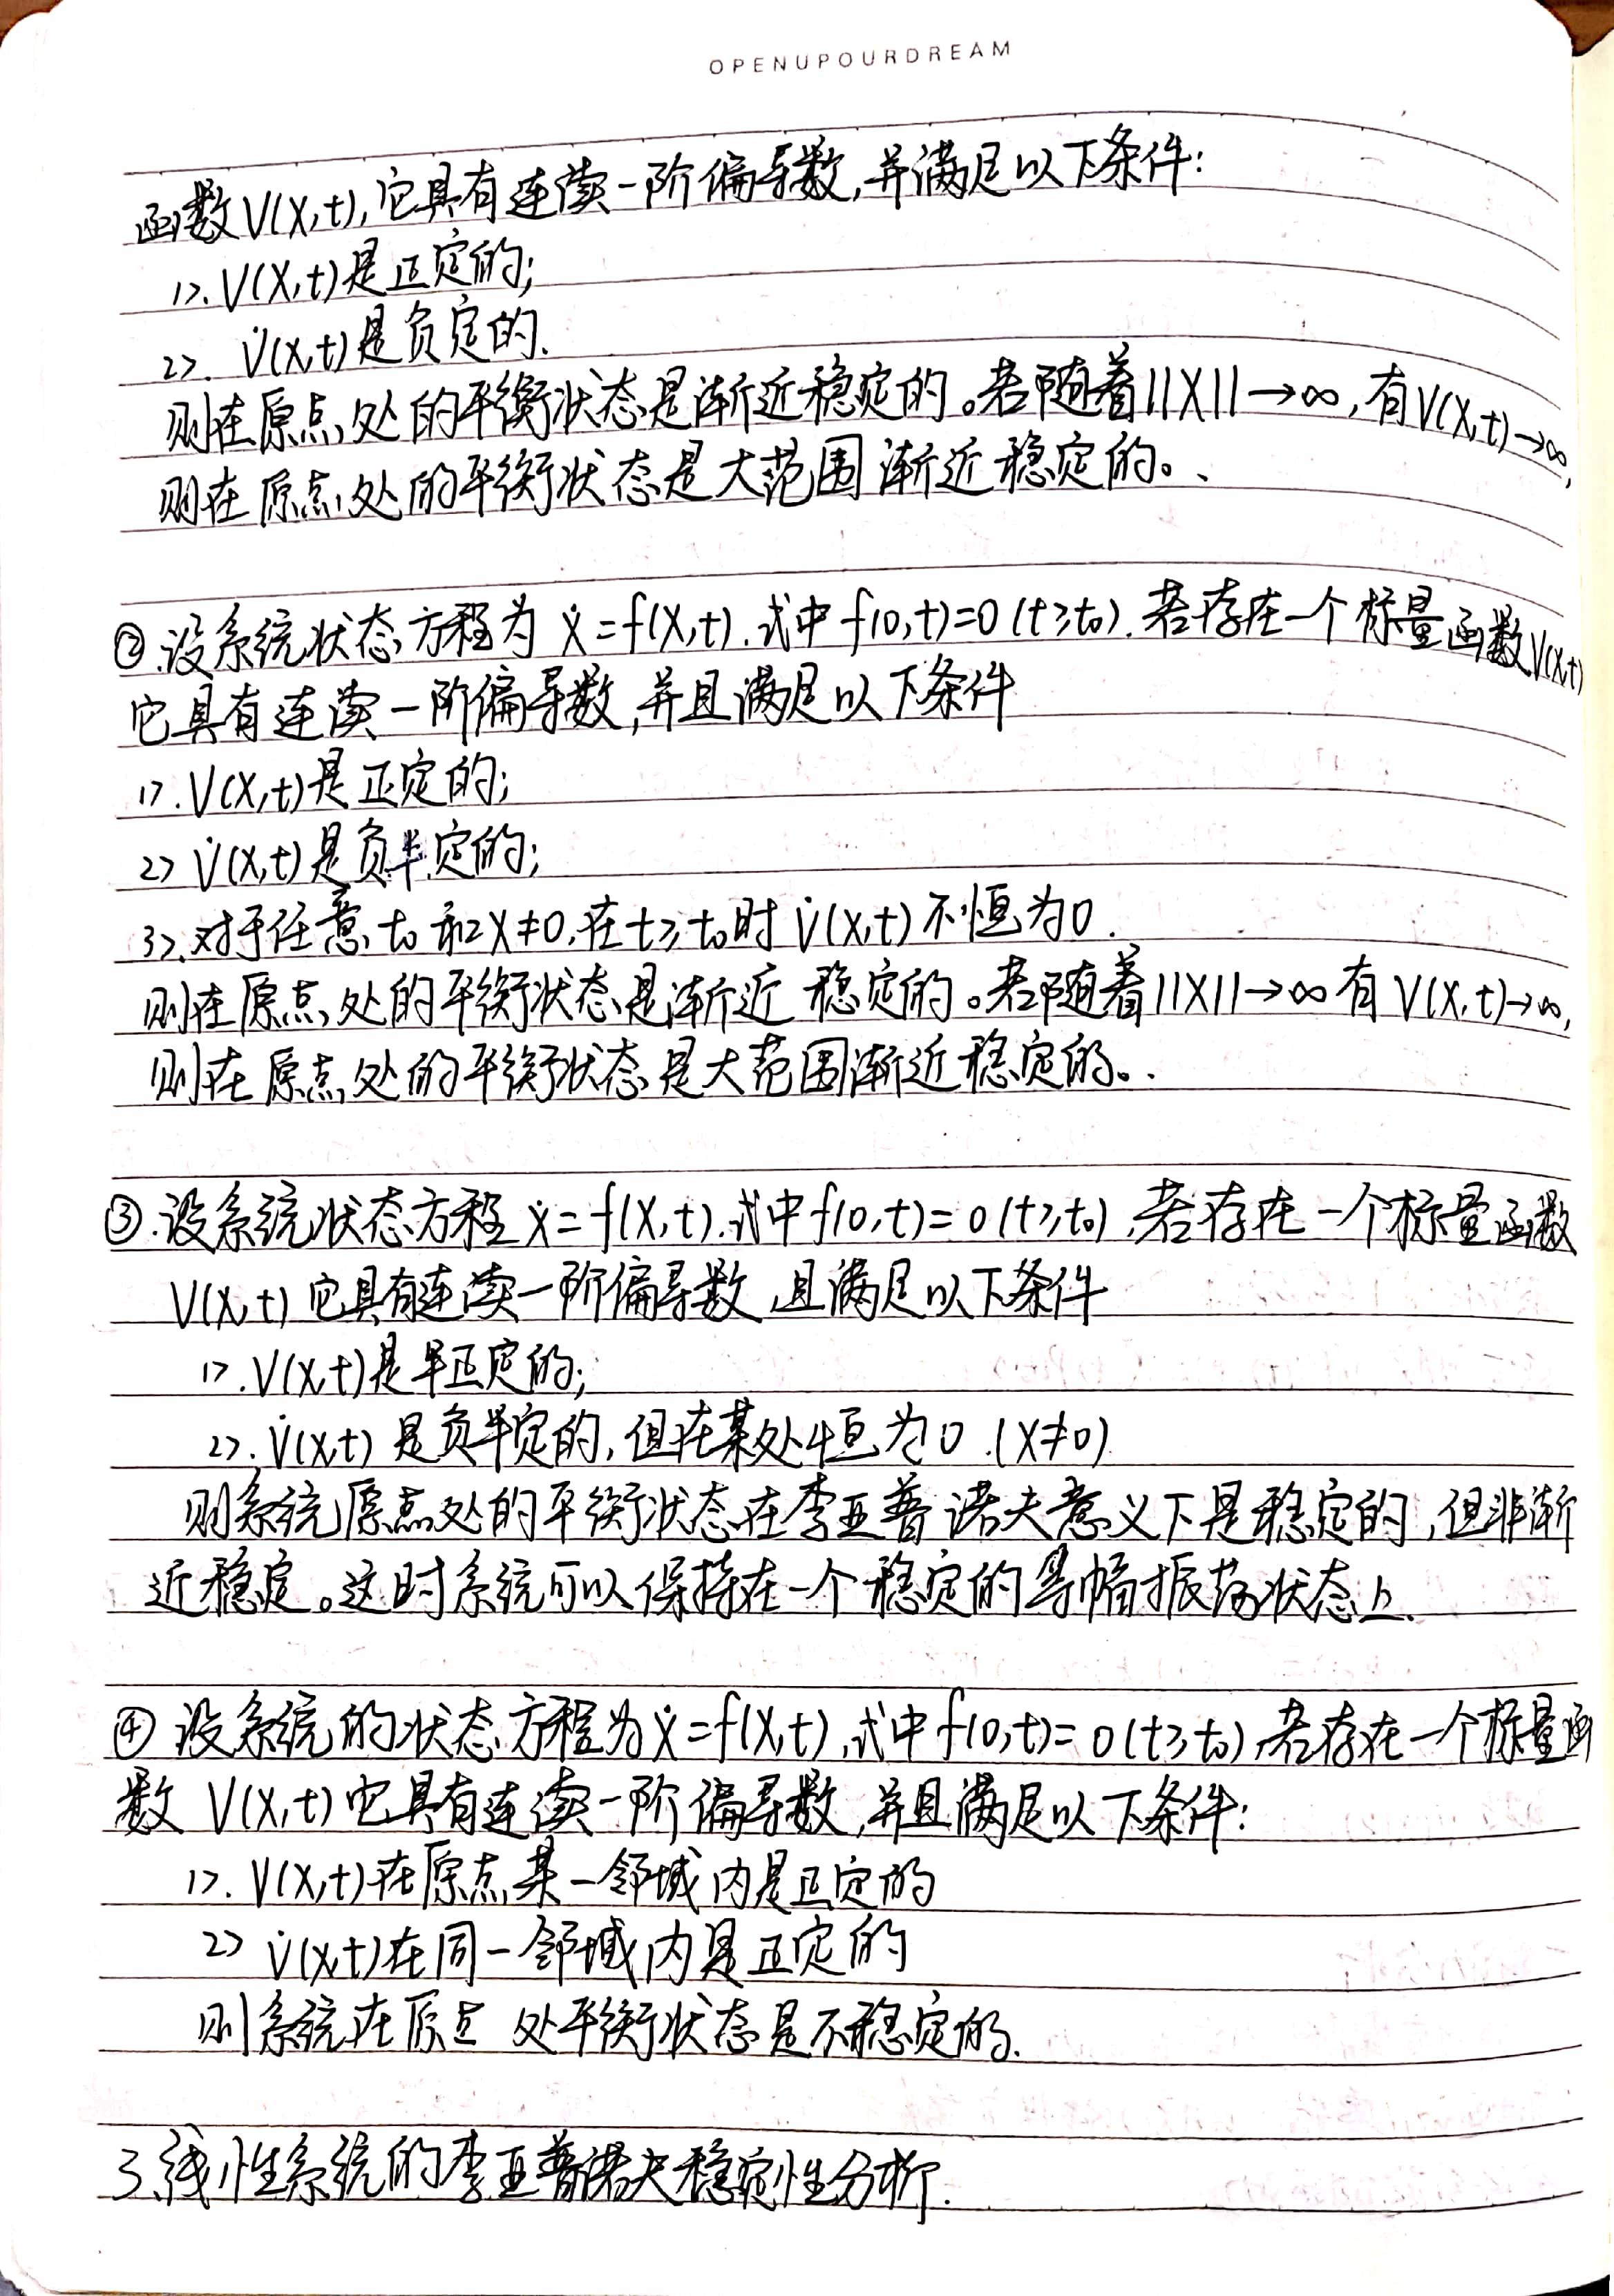 OPENUPOURDREAM
函数V(X,t),它具有连续一阶偏导数,并满足以下条件:
1>. V(X,t)是正定的;
2>. V̇(X,t)是负定的.
则在原点处的平衡状态是渐近稳定的。若随着||X||→∞,有V(X,t)→∞,
则在原点处的平衡状态是大范围渐近稳定的。
②.设系统状态方程为 ẋ=f(X,t).式中f(0,t)=0(t≥t₀).若存在一个标量函数V(X,t)
它具有连续一阶偏导数,并且满足以下条件
1>.V(X,t)是正定的;
2> V̇(X,t)是负半定的;
3>.对于任意t₀和X≠0,在t≥t₀时 V̇(X,t)不恒为0.
则在原点处的平衡状态是渐近稳定的。若随着||X||→∞有V(X,t)→∞,
则在原点处的平衡状态是大范围渐近稳定的。.
③.设系统状态方程 ẋ=f(X,t).式中f(0,t)=0(t≥t₀),若存在一个标量函数
V(X,t)它具有连续一阶偏导数,且满足以下条件
1>.V(X,t)是半正定的;
2>.V̇(X,t)是负半定的,但在某处恒为0.(X≠0)
则系统原点处的平衡状态在李亚普诺夫意义下是稳定的,但非渐
近稳定。这时系统可以保持在一个稳定的等幅振荡状态上.
④ 设系统的状态方程为ẋ=f(X,t),式中f(0,t)=0(t≥t₀),若存在一个标量函
数 V(X,t)它具有连续一阶偏导数,并且满足以下条件:
1>. V(X,t)在原点某一邻域内是正定的
2> V̇(X,t)在同一邻域内是正定的
则系统在原点处平衡状态是不稳定的.
3.线性系统的李亚普诺夫稳定性分析.